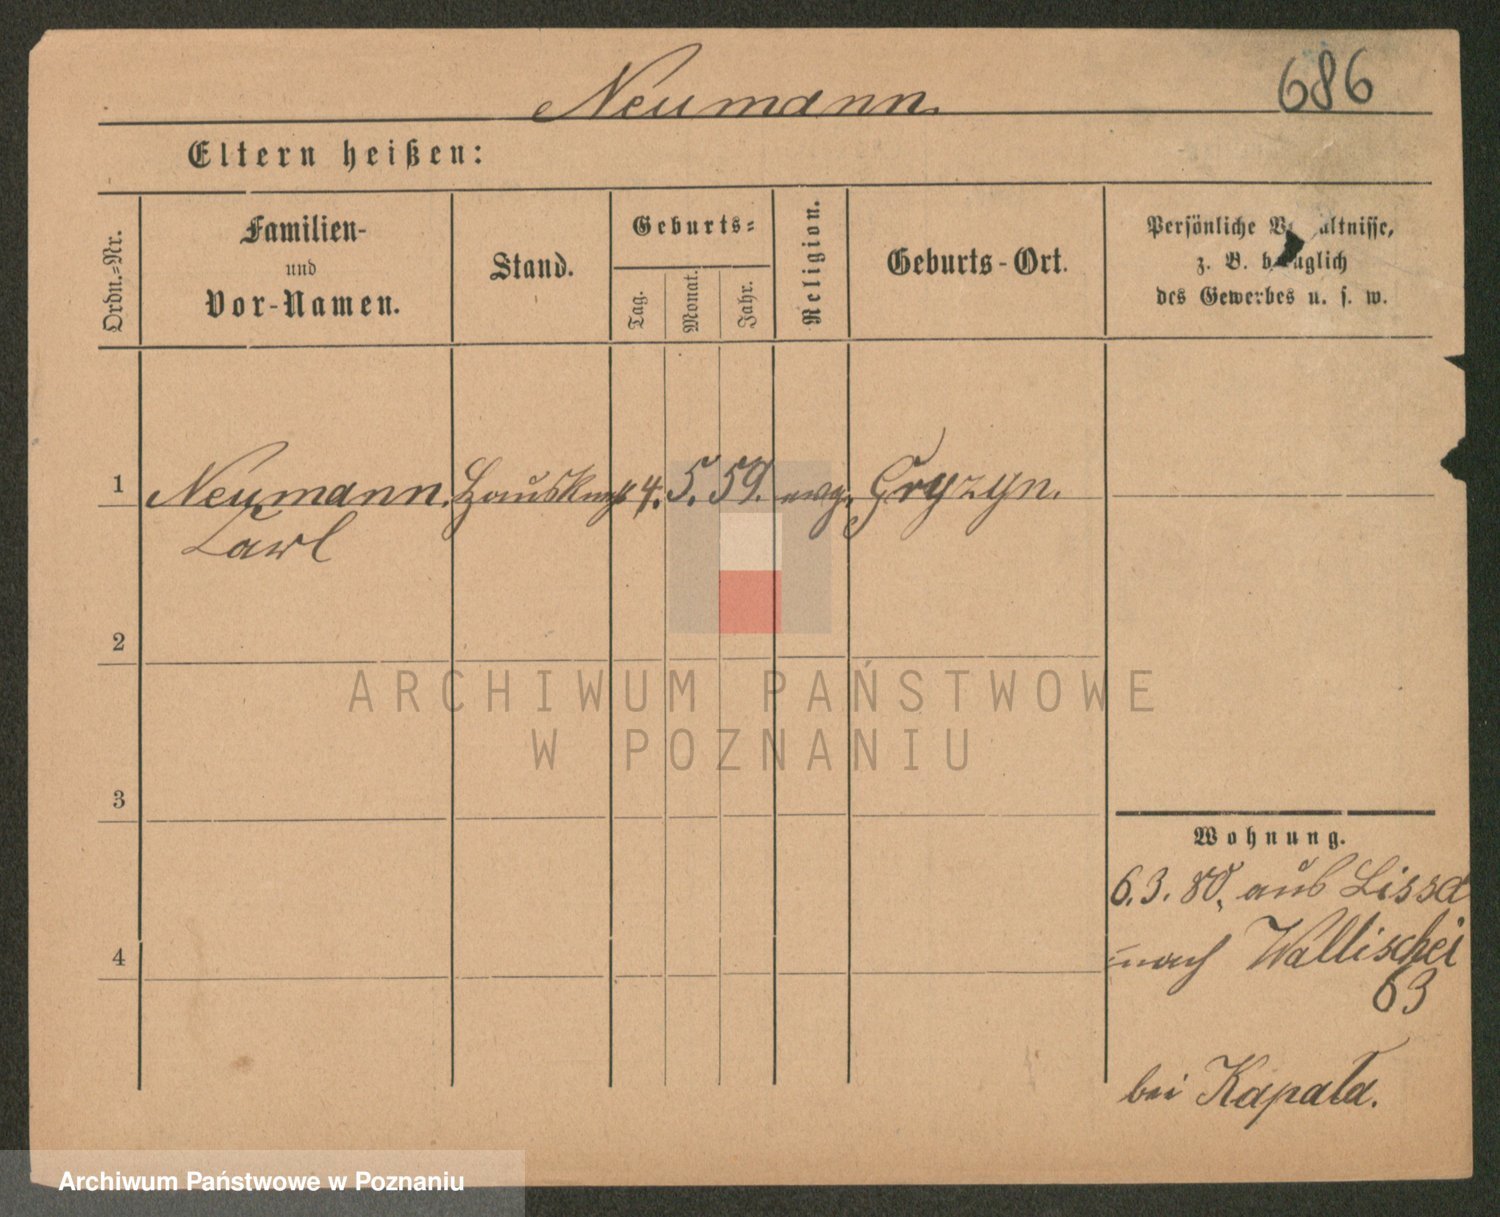 Neumann.
686
Eltern heißen:
Ordn.-Nr.
Familien-
und
Vor-Namen.
Stand.
Geburts-
Tag.
Monat.
Jahr.
Religion.
Geburts-Ort.
Persönliche
z. B.
des Gewerbes u. s. w.
1 Neumann. Hausknecht 4. 5. 59. evg. Gryzyn.
Carl
2
3
4
Wohnung.
6.3.80, aus Lissa
nach Wallischei
63
bei Kapała.
ARCHIWUM PAŃSTWOWE
W POZNANIU
Archiwum Państwowe w Poznaniu